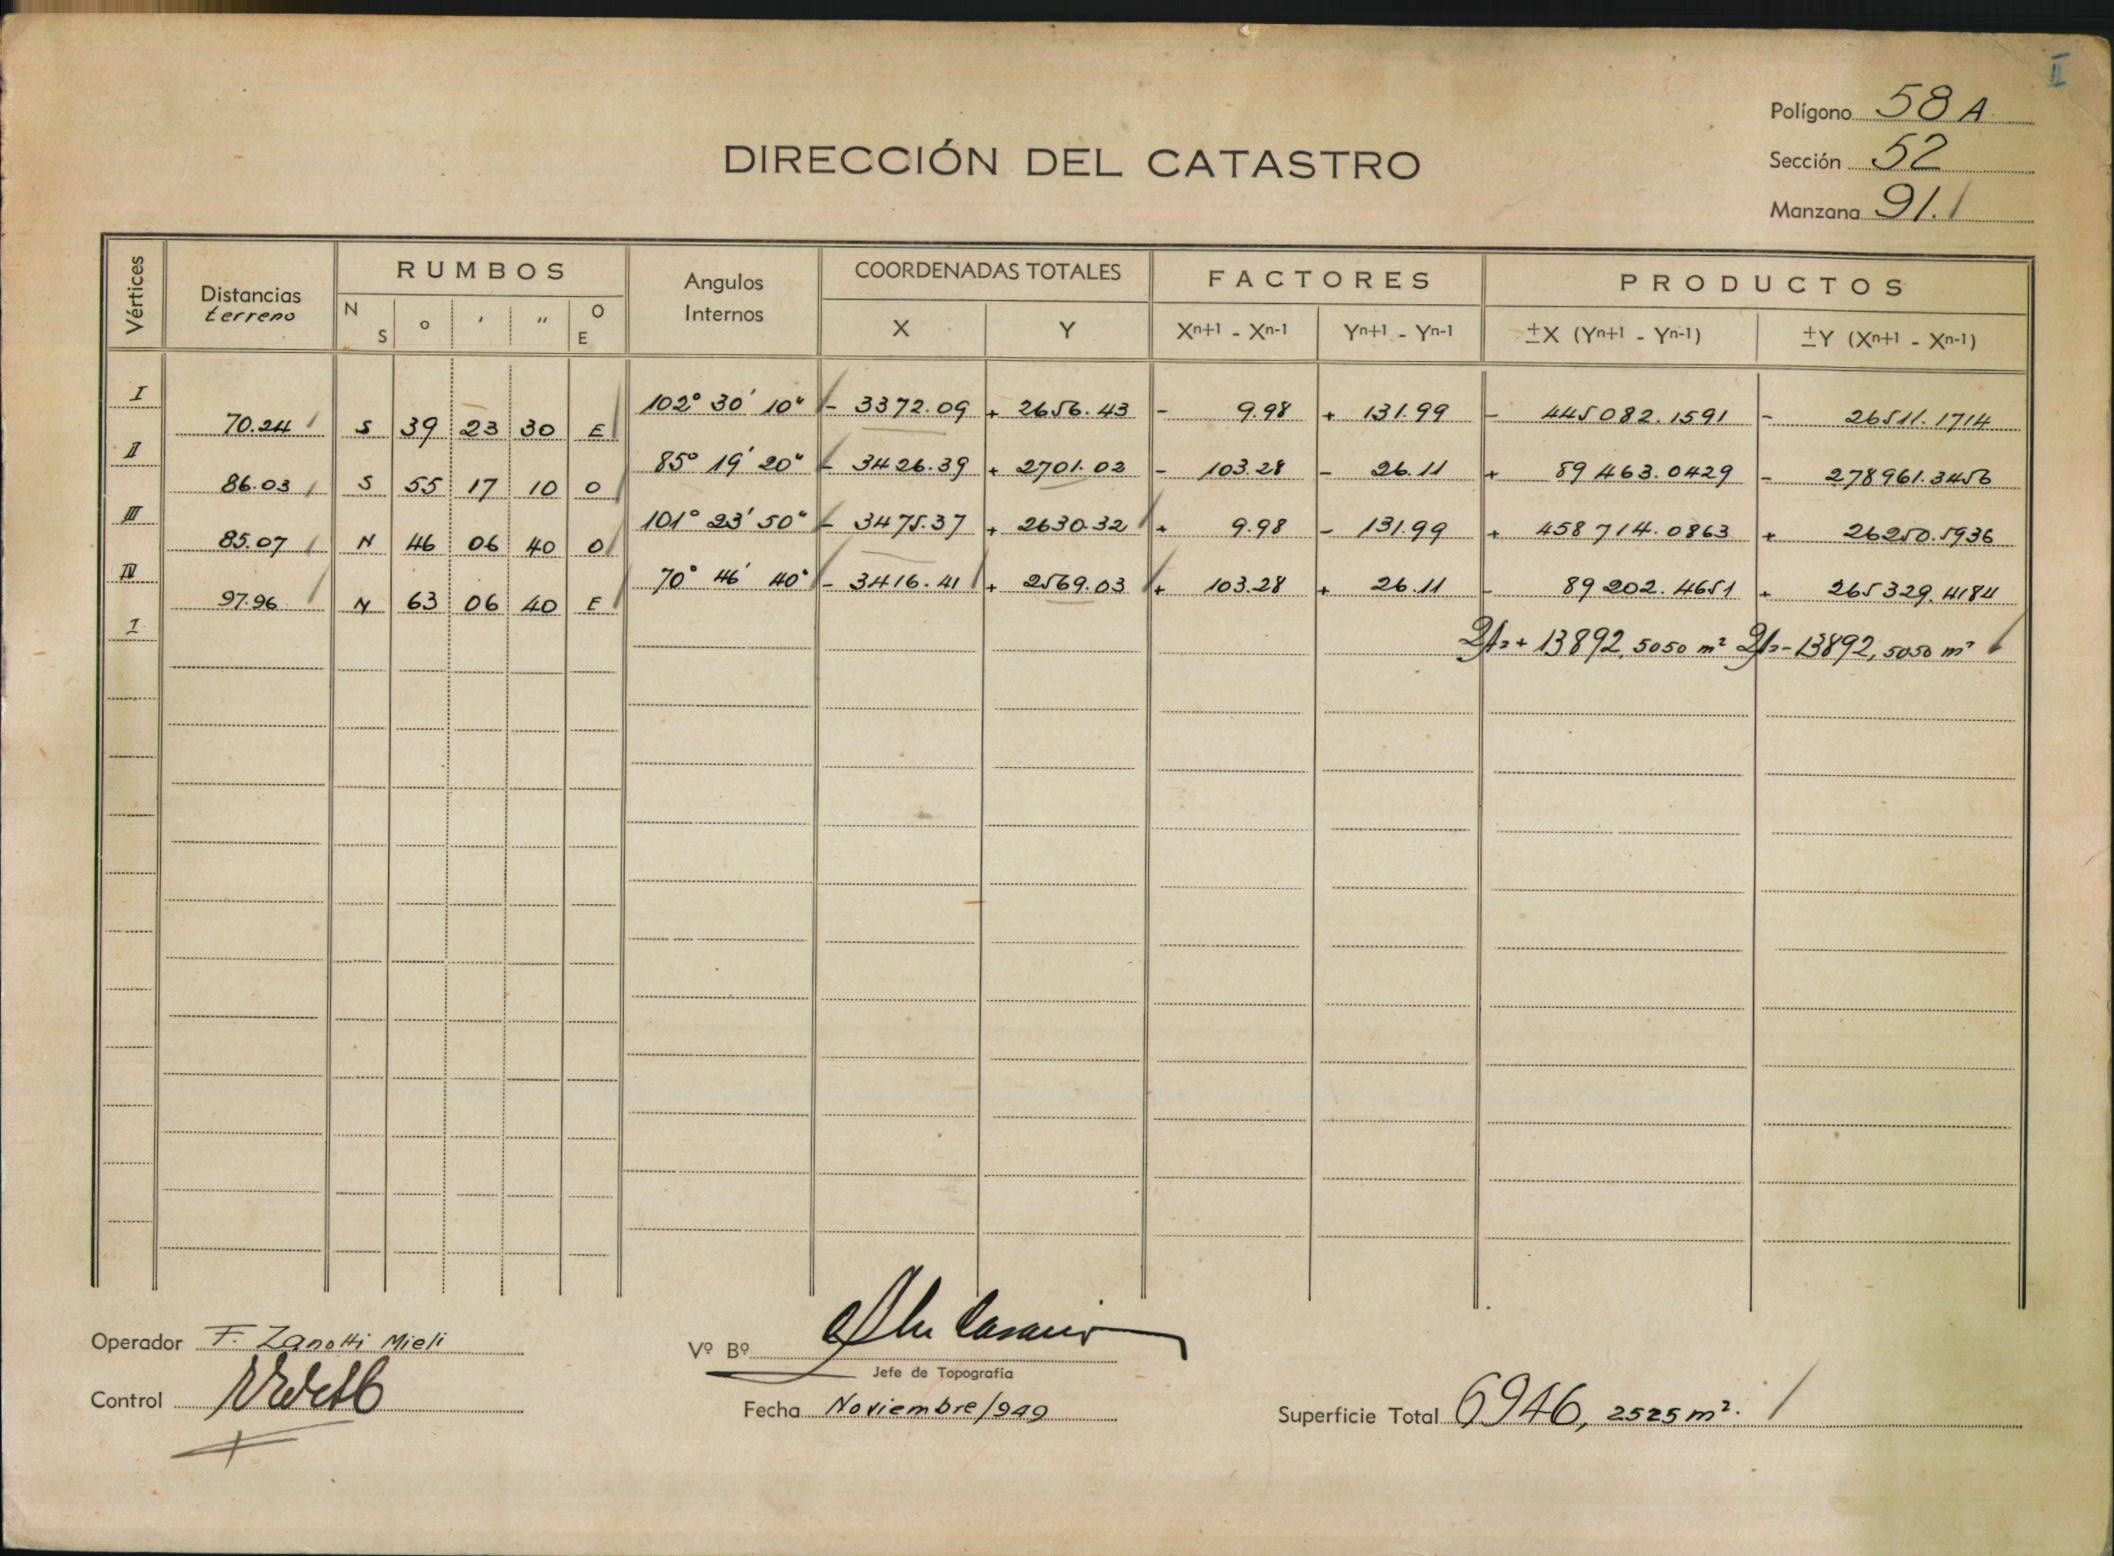 II
Polígono 58 A
Sección 52
Manzana 91.
DIRECCIÓN DEL CATASTRO
Vértices Distancias terreno RUMBOS Angulos Internos COORDENADAS TOTALES FACTORES PRODUCTOS
N S o ' " O E X Y Xn+1 - Xn-1 Yn+1 - Yn-1 ±X (Yn+1 - Yn-1) ±Y (Xn+1 - Xn-1)
I 102° 30' 10" - 3372.09 + 2656.43 - 9.98 + 131.99 - 445082.1591 - 26511.1714
70.24 S 39 23 30 E
II 85° 19' 20" - 3426.39 + 2701.02 - 103.28 - 26.11 + 89463.0429 - 278961.3456
86.03 S 55 17 10 O
III 101° 23' 50" - 3475.37 + 2630.32 + 9.98 - 131.99 + 458714.0863 + 26250.5936
85.07 N 46 06 40 O
IV 70° 46' 40" - 3416.41 + 2569.03 + 103.28 + 26.11 - 89202.4651 + 265329.4184
97.96 N 63 06 40 E
I 2A= + 13892,5050 m² 2A= - 13892,5050 m²
Operador F. Zanotti Mieli
Control
Vº Bº
Jefe de Topografía
Fecha Noviembre/949
Superficie Total 6946, 2525 m².